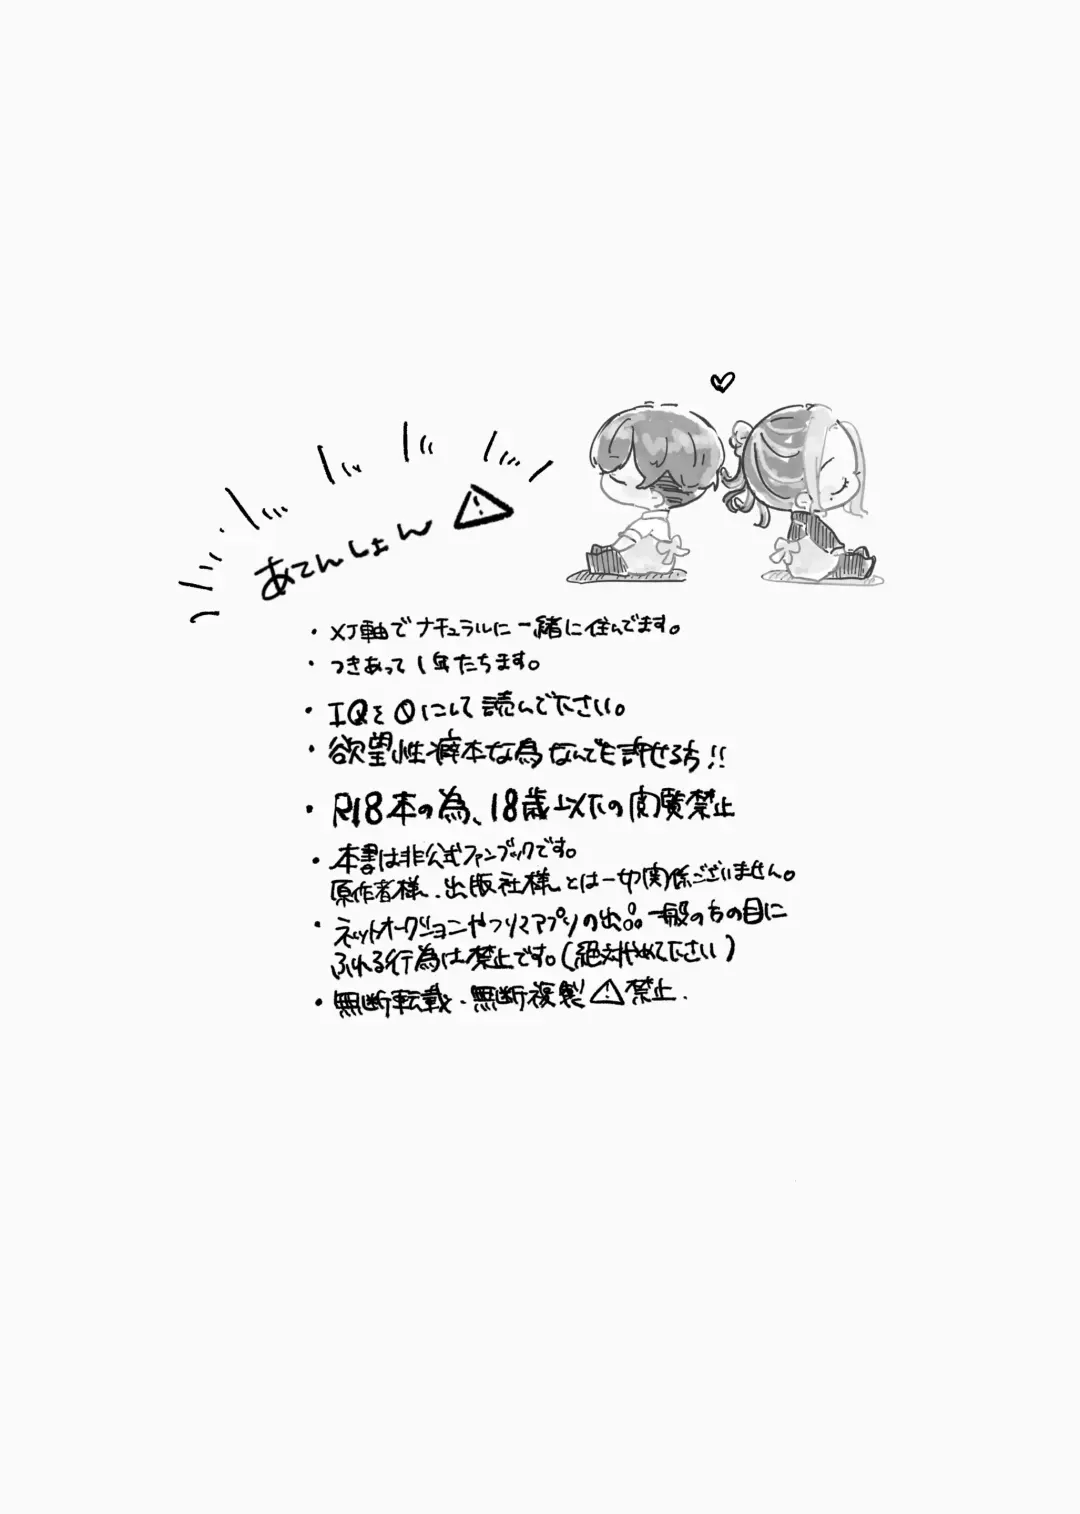 あてんしょん ⚠
・XJ軸でナチュラルに一緒に住んでます。
・つきあって1年たちます。
・IQを0にして読んで下さい。
・欲望性癖本な為なんでも許せる方!!
・R18本の為、18歳以下の閲覧禁止
・本書は非公式ファンブックです。
原作者様、出版社様とは一切関係ございません。
・ネットオークションやフリマアプリの出品 一般の方の目に
ふれる行為は禁止です。(絶対やめてください)
・無断転載・無断複製⚠禁止.